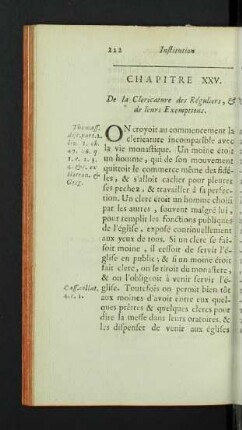 212 Institution
CHAPITRE XXV.
De la Clericature des Réguliers, &
de leurs Exemptions.
ON croyoit au commencement la
clericature incompatible avec
la vie monastique. Un moine étoit
un homme, qui de son mouvement
quittoit le commerce même des fidé-
les, & s'alloit cacher pour pleurer
ses pechez, & travailler à sa perfec-
tion. Un clerc étoit un homme choisi
par les autres, souvent malgré lui,
pour remplir les fonctions publiques
de l'église, exposé continuellement
aux yeux de tous. Si un clerc se fai-
soit moine, il cessoit de servir l'é-
glise en public; & si un moine étoit
fait clerc, on le tiroit du monastére,
& on l'obligeoit à venir servir l'é-
glise. Toutefois on permit bien-tôt
aux moines d'avoir entre eux quel-
ques prêtres & quelques clercs pour
dire la messe dans leurs oratoires, &
les dispenser de venir aux églises
Thomass.
disc. part. 2.
Greg.